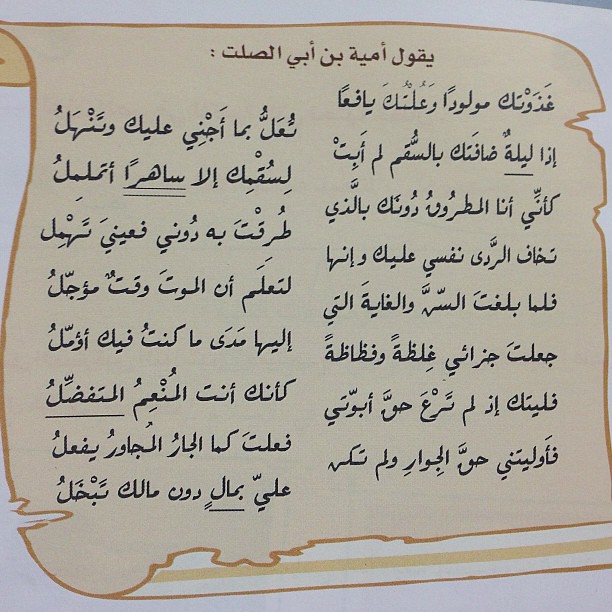 يقول أمية بن أبي الصلت :
غَذَوْتك مولودًا وَعُلْتُكَ يافعًا
تُعَلُّ بما أَجْنِي عليك وتَنْهَلُ
إذا ليلةٌ ضافَتك بالسُّقم لم أَبِتْ
لِسُقْمِك إلا ساهرًا أتململُ
كأنِّي أنا المطروقُ دُونَك بالَّذي
طُرِقْتَ به دُوني فعينيَ تَهْمِل
تخاف الرَّدى نفسي عليك وإنها
لتعلَم أن الموتَ وقتٌ مؤجّلُ
فلما بلغتَ السّنَّ والغايةَ التي
إليها مَدَى ما كنتُ فيك أؤمّلُ
جعلتَ جزائي غِلظةً وفظاظةً
كأنك أنت المُنْعِمُ المتفضِّلُ
فليتك إذ لم تَرْعَ حقَّ أبوّتي
فعلتَ كما الجارُ المُجاورُ يفعلُ
فأوليتني حقَّ الجِوارِ ولم تكن
عليّ بمالٍ دون مالك تَبْخَلُ